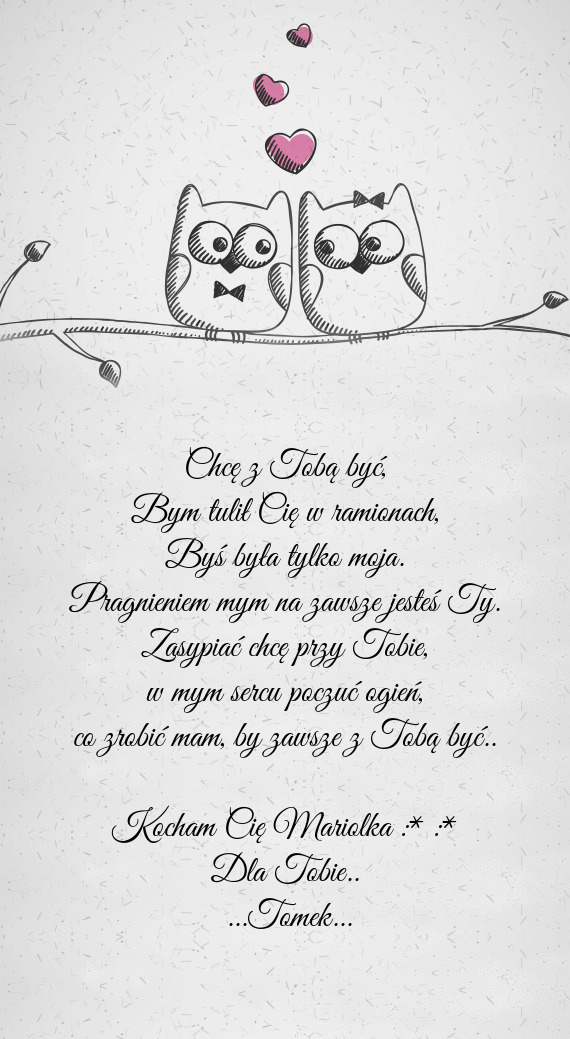 Chcę z Tobą być,
Bym tulił Cię w ramionach,
Byś była tylko moja.
Pragnieniem mym na zawsze jesteś Ty.
Zasypiać chcę przy Tobie,
w mym sercu poczuć ogień,
co zrobić mam, by zawsze z Tobą być..
Kocham Cię Mariolka :* :*
Dla Tobie..
...Tomek...